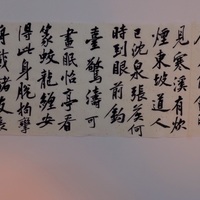 見寒溪有炊
煙東坡道人
已沈泉張侯何
時到眼前釣
臺驚濤可
晝眠怡亭看
篆蛟龍纏安
得此身脫拘攣
舟載諸友長